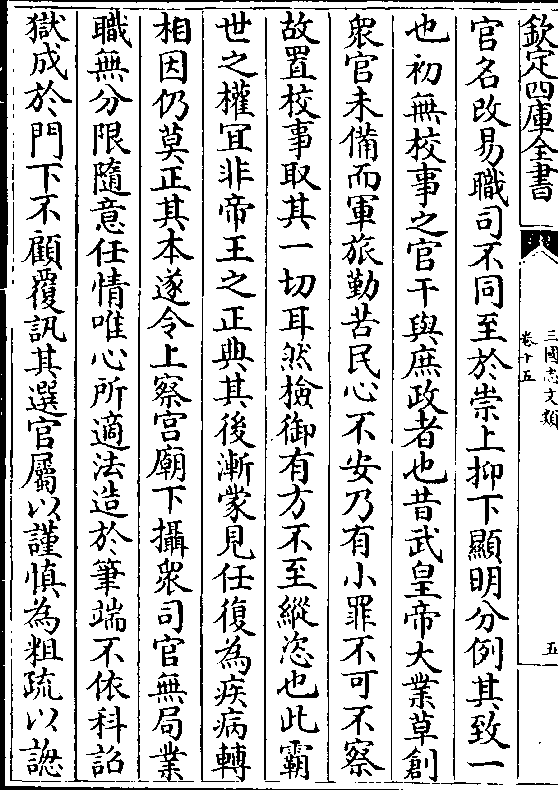 欽定四庫全書
三國志文類
卷十五
五
官名改易職司不同至於崇上抑下顯明分例其致一
也初無校事之官干與庶政者也昔武皇帝大業草創
衆官未備而軍旅勤苦民心不安乃有小罪不可不察
故置校事取其一切耳然檢御有方不至縱恣也此霸
世之權宜非帝王之正典其後漸蒙見任復為疾病轉
相因仍莫正其本遂令上察宫廟下攝衆司官無局業
職無分限隨意任情唯心所適法造於筆端不依科詔
獄成於門下不顧覆訊其選官屬以謹慎為粗疏以謥